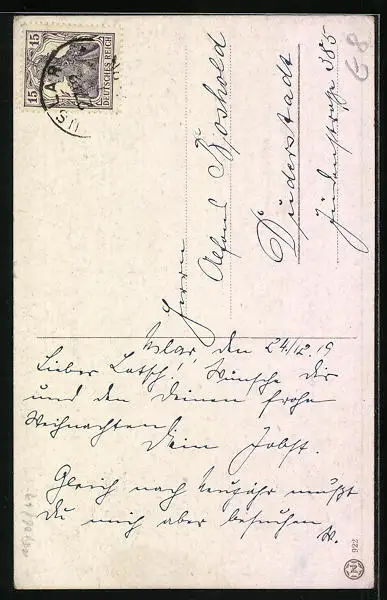 15 15
DEUTSCHES REICH
USLAR
Herrn
Alfred
Duderstadt
Jüdenstraße 385
68
Uslar, den 24/12.19
Lieber Latsch! Wünsche Dir
und den Deinen frohe
Weihnachten!
Dein Jobst.
Gleich nach Neujahr mußt
Du mich aber besuchen
922